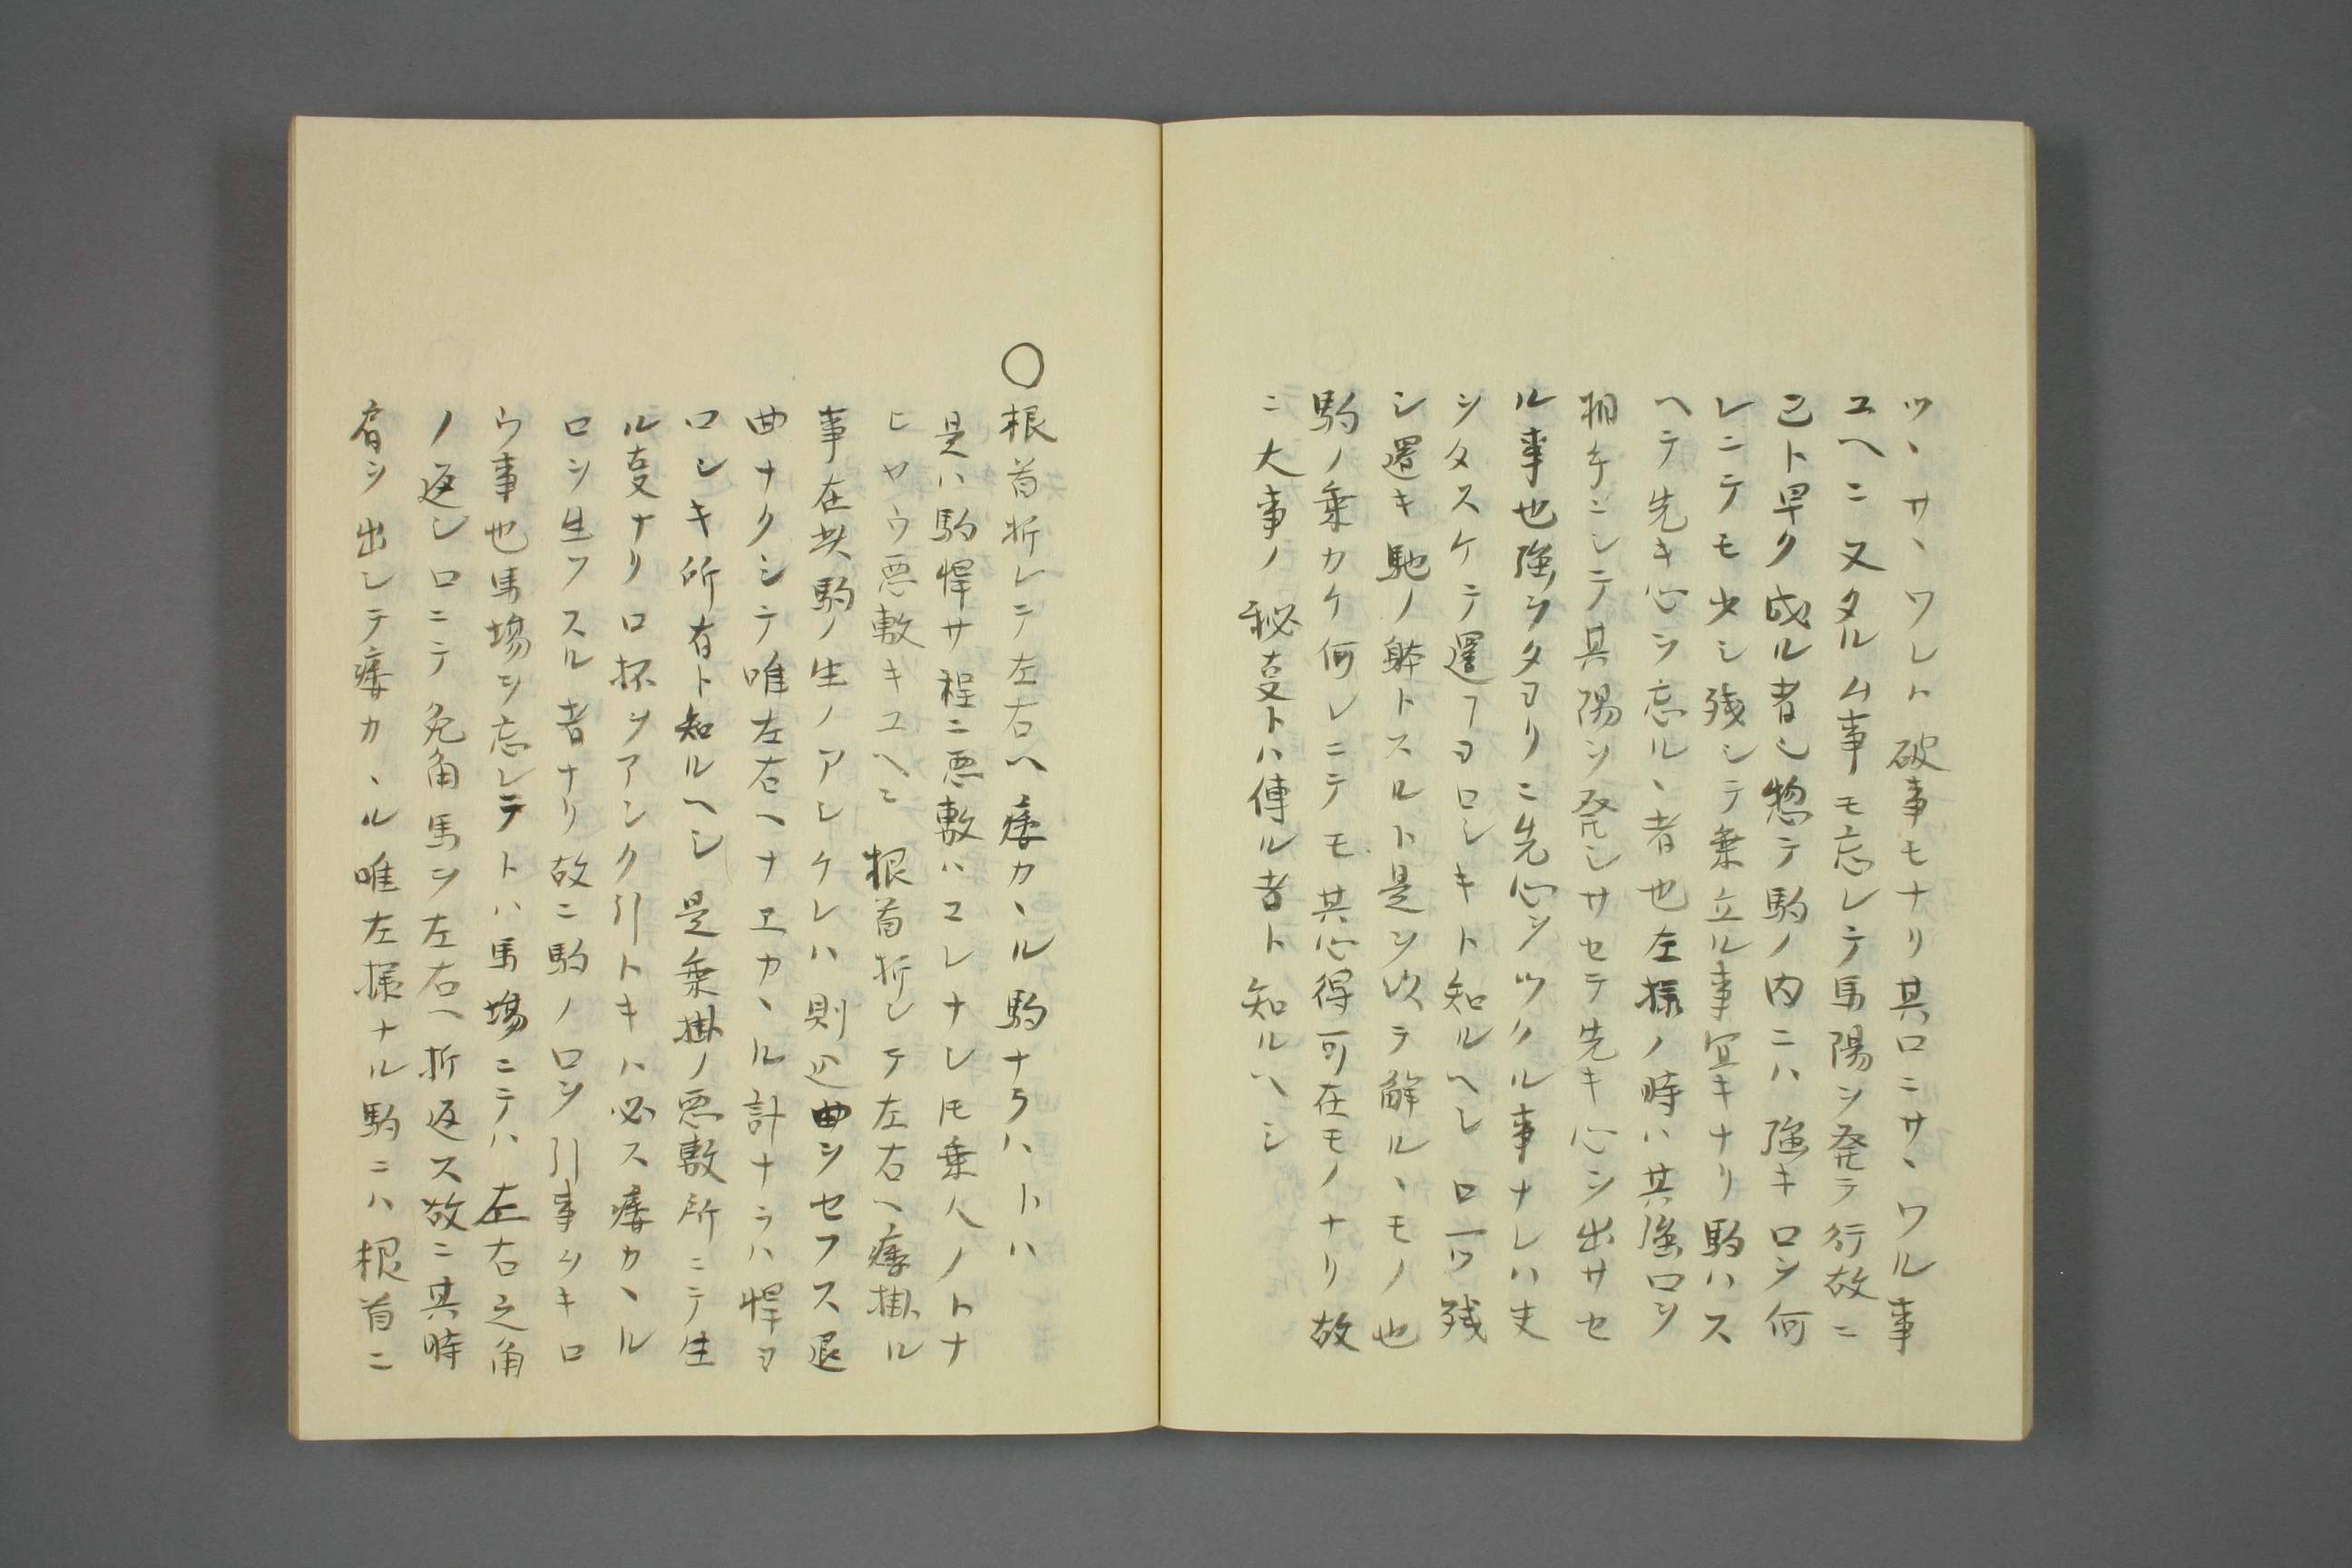 ツヽサヽワレト破事モナリ其口ニサヽワル事
ユヘニ又タルム事モ忘レテ馬陽ヲ発テ行故ニ
己ト早ク成ル者也惣テ駒ノ内ニハ強キロヲ何
レニテモ少シ残シテ乗立ル事宜キナリ駒ハス
ヘテ先キ心ヲ忘ルヽ者也左様ノ時ハ其強口ヲ
相手ニシテ其陽ヲ発シサセテ先キ心ヲ出サセ
ル事也強ヲタヨリニ先心ヲツクル事ナレハ丈
ヲタスケテ還テヨロシキト知ルヘシ口一ツ残
シ置キ馳ノ躰トスルト是ヲ以テ解ルヽモノ也
駒ノ乗カケ何レニテモ其心得可在モノナリ故
ニ大事ノ秘叓トハ傳ル者ト知ルヘシ
〇根首折レテ左右ヘ痿カヽル駒ナラハトハ
是ハ駒悍サ程ニ悪敷ハコレナシ𪜈乗人ノトナ
ヒヤウ悪敷キユヘニ根首折レテ左右ヘ痿掛ル
事在共駒ノ生ノアシケレハ則辺曲ヲセフス退
曲ナクシテ唯左右ヘナヱカヽル計ナラハ悍ヨ
ロシキ所有ト知ルヘシ是乗掛ノ悪敷所ニテ生
ル叓ナリ口抔ヲアシク引トキハ必ス痿カヽル
ロヲ生フスル者ナリ故ニ駒ノ口ヲ引事ムキロ
ウ事也馬場ヲ忘レテトハ馬場ニテハ左右之角
ノ返シ口ニテ兔角馬ヲ左右ヘ折返ス故ニ其時
肩ヲ出シテ痿カヽル唯左様ナル駒ニハ根首ニ